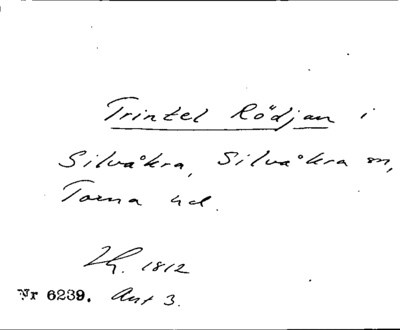 Trintel Rödjan i
Silvåkra, Silvåkra sn,
Torna hd.
1812
Nr 6239. Ant 3.